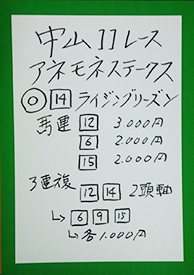 中山11レース
アネモネステークス
◎ 14 ライジングリーズン
馬連 12 3.000円
6 2.000円
15 2.000円
3連複 12 14 2頭軸
↳ 6 9 15
↳ 各1.000円